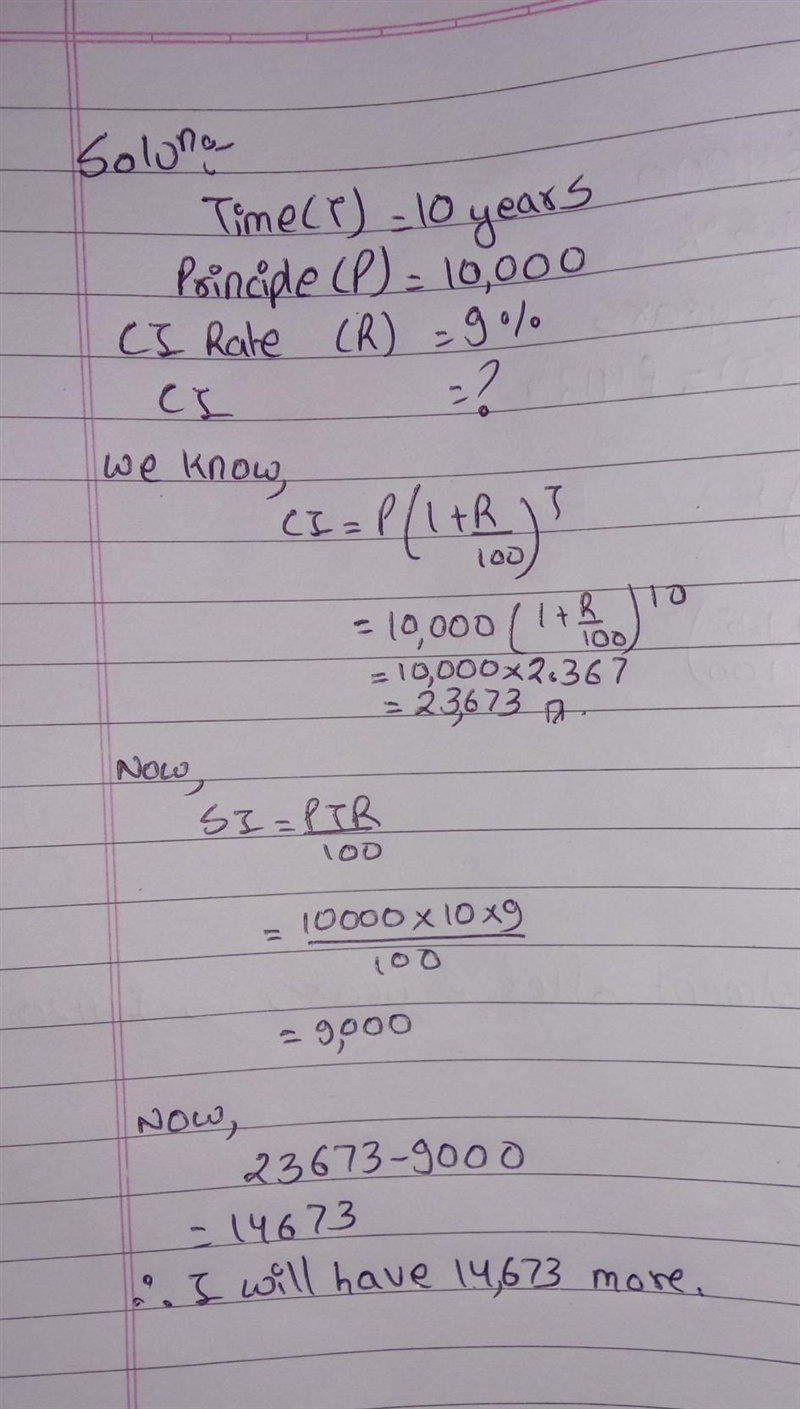 Soluno:-
Time(T) = 10 years
Principle (P) = 10,000
CI Rate (R) = 9%
CI = ?
We know,
CI = P(1+R/100)^T
= 10,000 (1+R/100)^10
= 10,000×2.367
= 23,673
Now,
SI = PTR/100
= 10000×10×9/100
= 9,000
Now,
23673-9000
= 14673
∴ I will have 14,673 more.